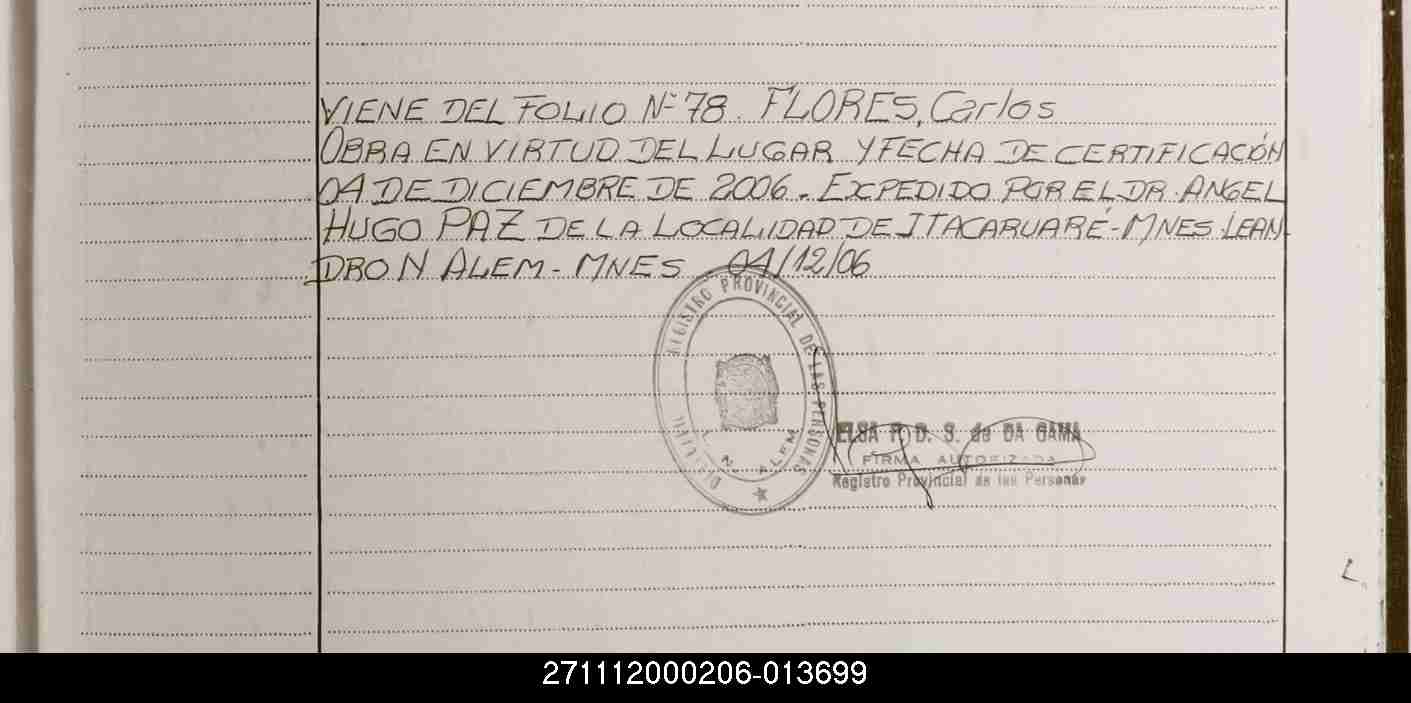 VIENE DEL FOLIO Nº 78. FLORES, Carlos
OBRA EN VIRTUD DEL LUGAR Y FECHA DE CERTIFICACIÓN
04 DE DICIEMBRE DE 2006. EXPEDIDO POR EL DR. ANGEL
HUGO PAZ DE LA LOCALIDAD DE ITACARUARÉ - MNES. LEAN
DRO N ALEM - MNES 04/12/06
REGISTRO PROVINCIAL DE LAS PERSONAS
L. N. ALEM
ELSA P. D. S. de DA GAMA
FIRMA AUTORIZADA
Registro Provincial de las Personas
271112000206-013699